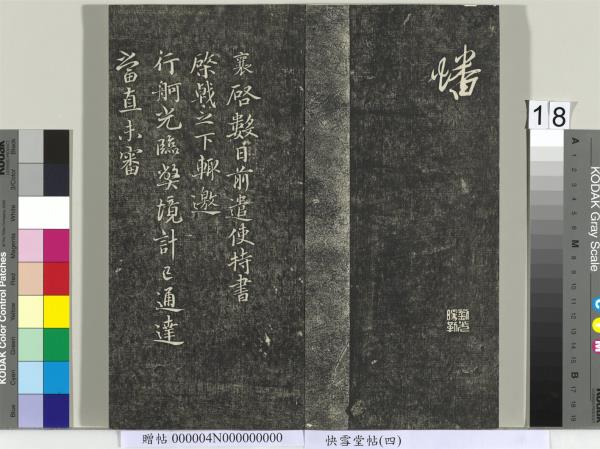 幡
襄啓數日前遣使持書
棨戟之下輙邀
行舸光臨弊境計已通達
當直未審
18
KODAK Gray Scale
C Y M
A 1 2 3 4 5 6 M 8 9 10 11 12 13 14 15 B 17 18 19
KODAK Color Control Patches
Blue Cyan Green Yellow Red Magenta White 3/Color Black
贈帖 000004N000000000
快雪堂帖(四)